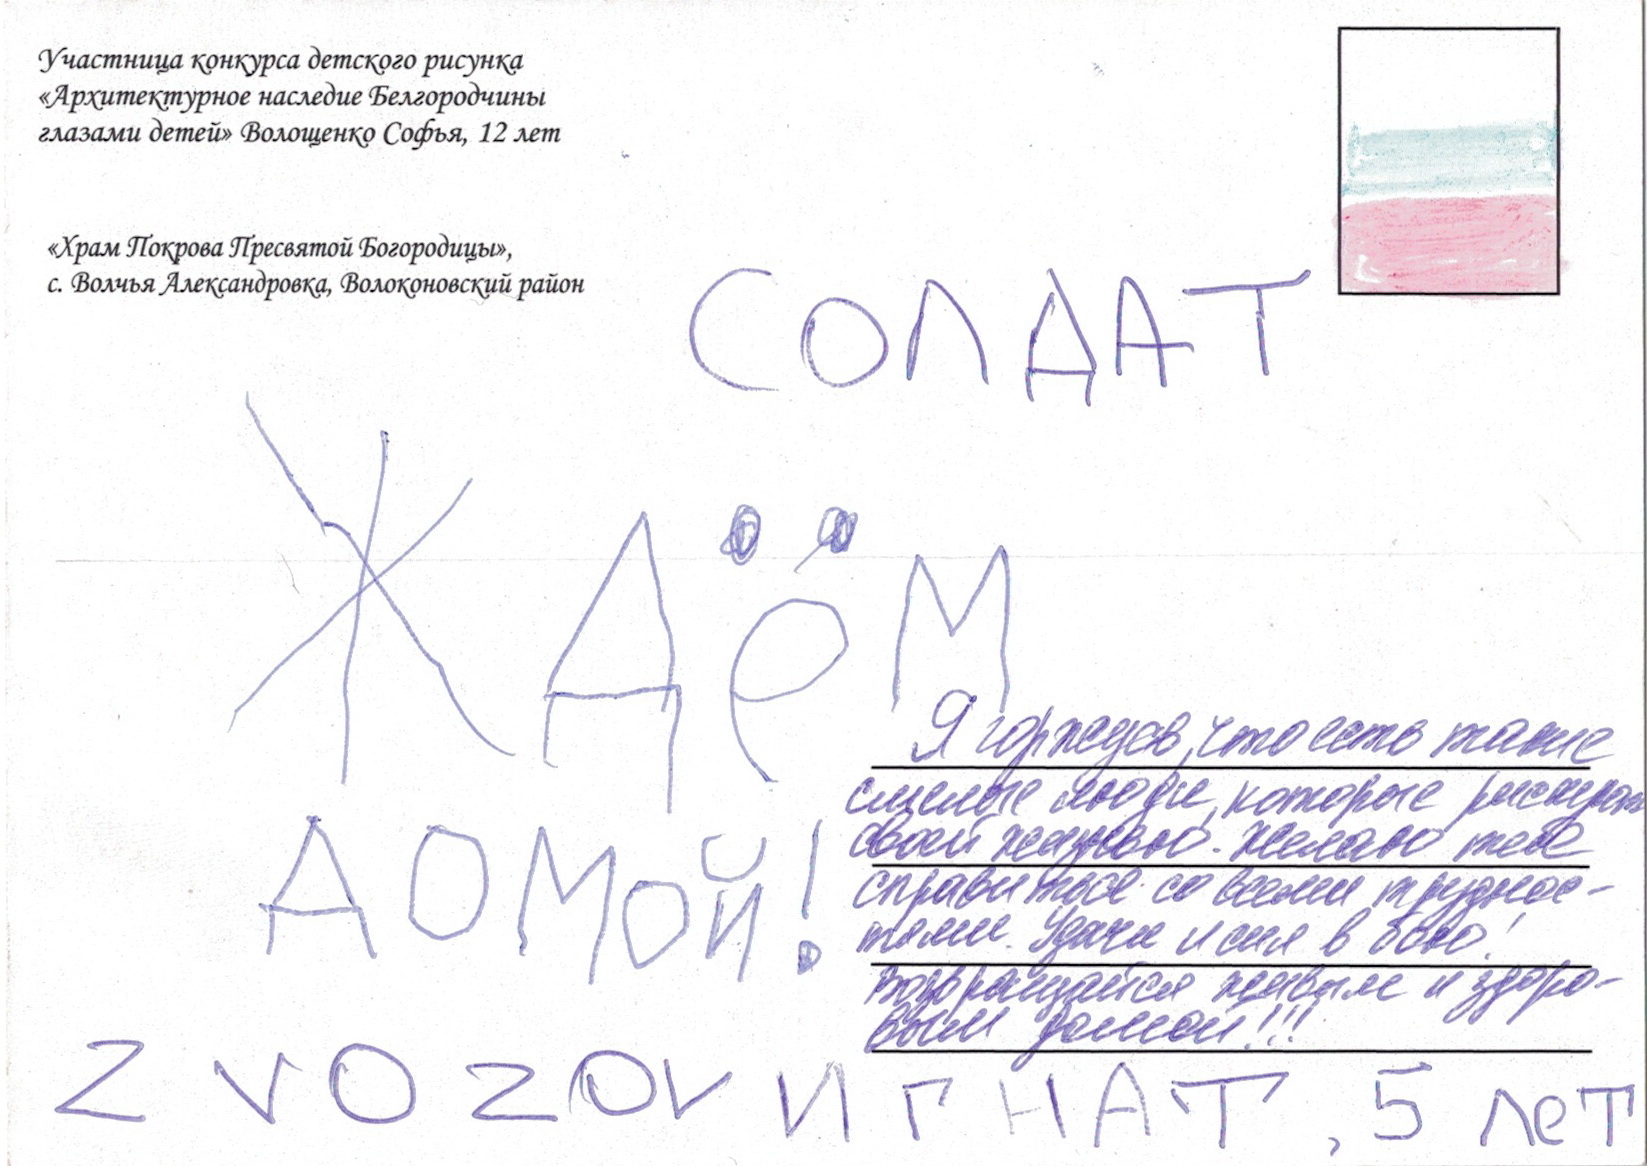 Участница конкурса детского рисунка
«Архитектурное наследие Белгородчины
глазами детей» Волощенко Софья, 12 лет
«Храм Покрова Пресвятой Богородицы»,
с. Волчья Александровка, Волоконовский район
СОЛДАТ
ЖДЁМ
ДОМОЙ!
Я горжусь, что есть такие
смелые люди, которые рискуют
своей жизнью. Желаю тебе
справиться со всеми труднос-
тями. Удачи и сил в бою!
Возвращайся живым и здоро-
вым домой!!!
Z V O Z O V ИГНАТ, 5 лет